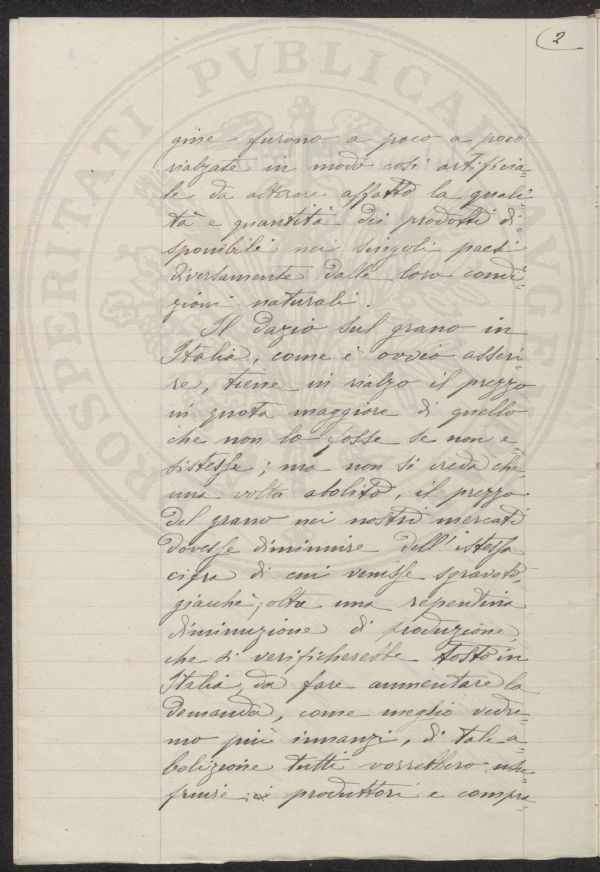 2
gine furono a poco a poco
rialzate in modo così artificia=
le da alterare affatto la quali=
tà e quantità dei prodotti di=
sponibili nei singoli paesi
diversamente dalle loro condi=
zioni naturali.
Il dazio sul grano in
Italia, come è ovvio asseri=
re, tiene in rialzo il prezzo
in quota maggiore di quello
che non lo fosse se non e=
sistesse; ma non si creda che,
una volta abolito, il prezzo
del grano nei nostri mercati
dovesse diminuire dell'istessa
cifra di cui venisse sgravato,
giacchè, oltre una repentina
diminuzione di produzione,
che si verificherebbe tosto in
Italia, da fare aumentare la
demanda, come meglio vedre=
mo più innanzi, di tale a=
bolizione tutti vorrebbero usu=
fruire: i produttori e compra=
PROSPERITATI PVBLICAE AVGENDAE